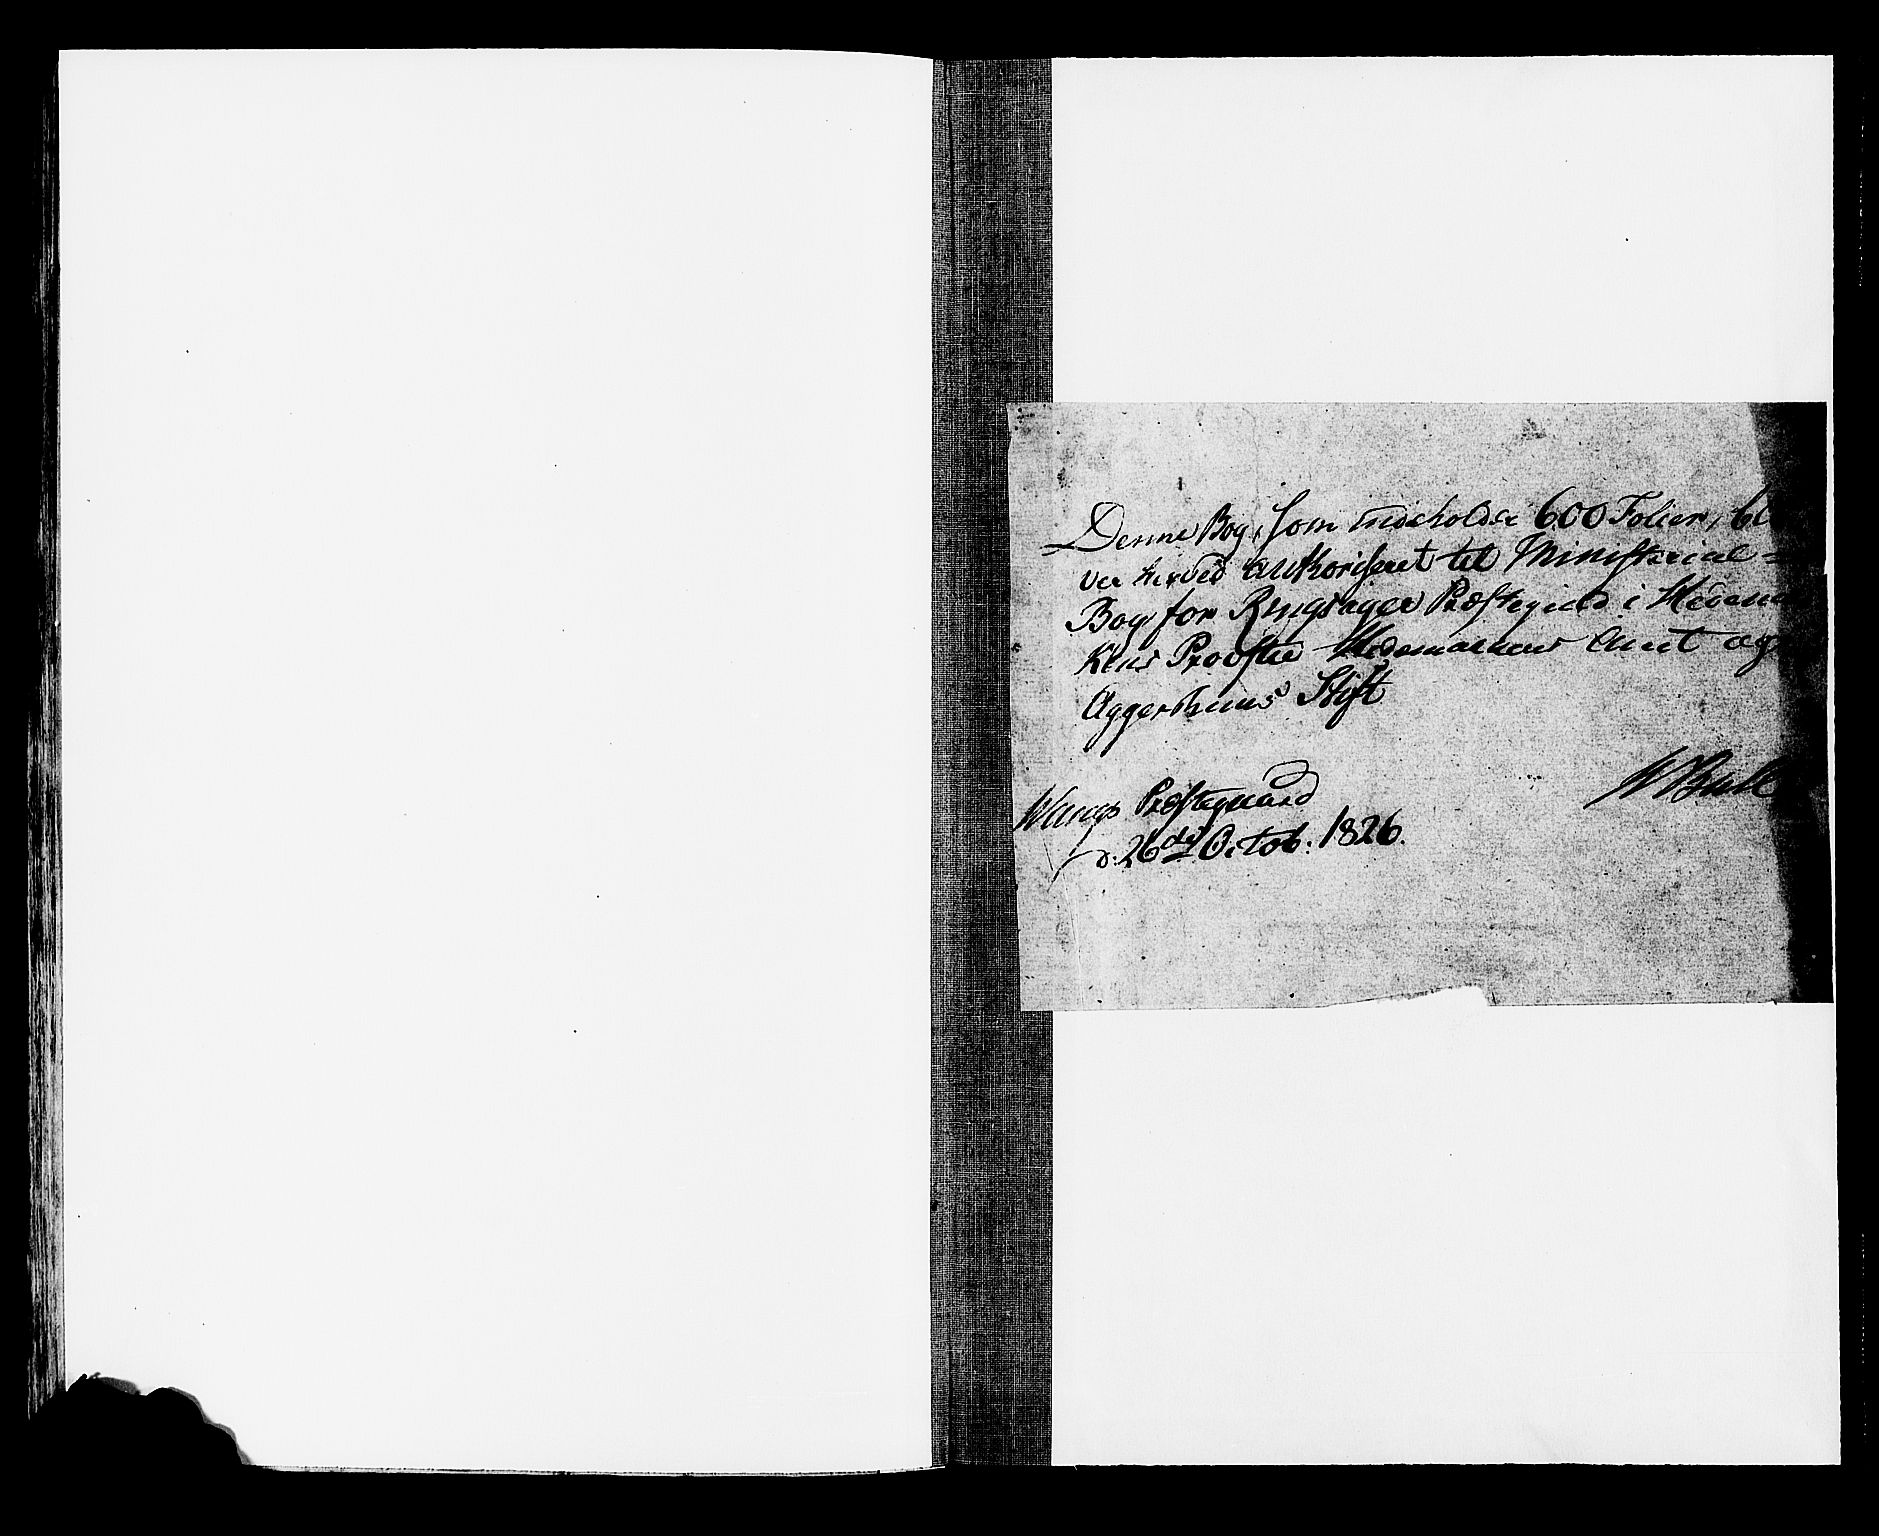 Denne Bog, som indeholder 600 Folier, bli
ver herved authoriseret til Ministerial=
Bog for Ringsager Præstegield i Hedemar
kens Provstie Hedemarkens Amt og
Aggershuus Stift
Wangs Præstegaard
d. 26de Octob: 1826.